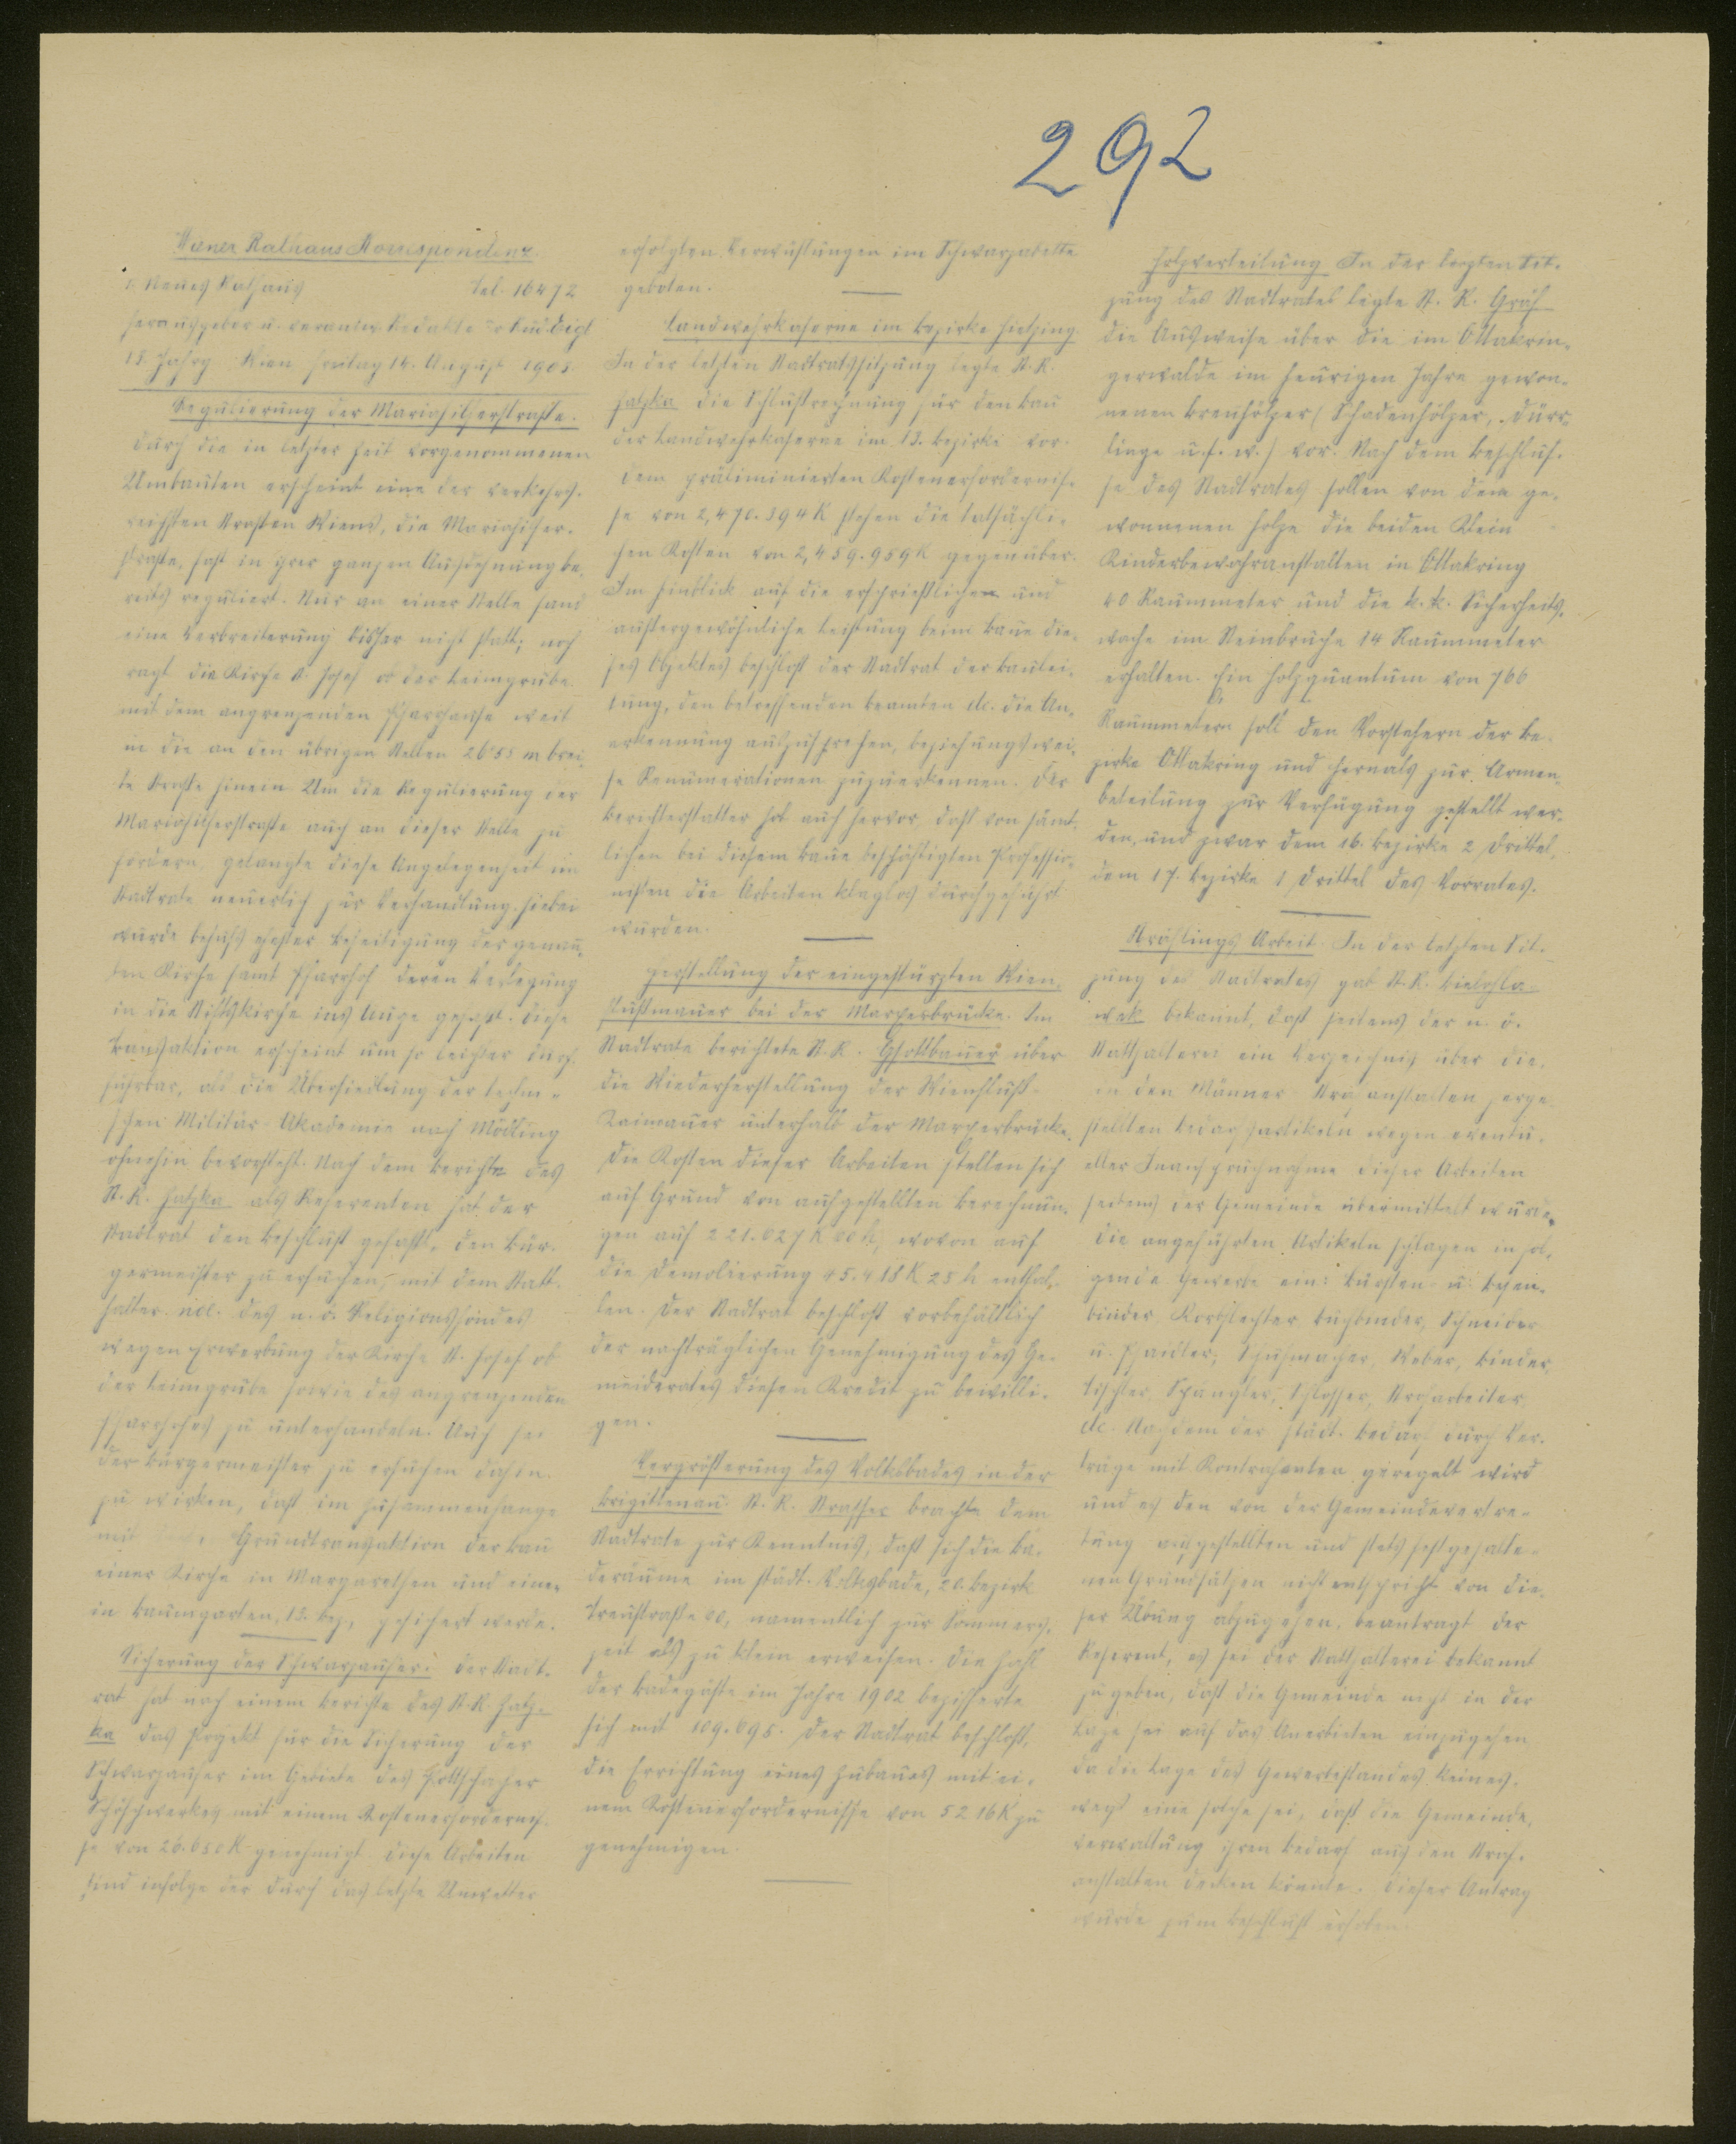 292
Wiener Rathaus Korrespondenz.
1. Neues Rathaus Tel. 16472
Herausgeber u. verantw. Redakteur Rud. Eigl
13. Jahrg. Wien Freitag 14. August 1903.
Regulierung der Mariahilferstraße.
Durch die in letzter Zeit vorgenommenen
Umbauten erscheint eine der verkehrs-
reichsten Straßen Wiens, die Mariahilfer-
straße, fast in ihrer ganzen Ausdehnung be-
reits reguliert. Nur an einer Stelle fand
eine Verbreiterung bisher nicht statt; noch
ragt die Kirche St. Josef ob der Leimgrube
mit dem angrenzenden Pfarrhause weit
in die an den übrigen Stellen 26·55 m brei-
te Straße hinein. Um die Regulierung der
Mariahilferstraße auch an dieser Stelle zu
fördern, gelangte diese Angelegenheit im
Stadtrate neuerlich zur Verhandlung. Hiebei
wurde behufs ehester Beseitigung der genann-
ten Kirche samt Pfarrhof deren Verlegung
in die Stiftskirche ins Auge gefaßt. Diese
Transaktion erscheint um so leichter durch-
führbar, als die Übersiedlung der techni-
schen Militär-Akademie nach Mödling
ohnehin bevorsteht. Nach dem Berichte des
St. R. Hatzka als Referenten hat der
Stadtrat den Beschluß gefaßt, den Bür-
germeister zu ersuchen, mit dem Statt-
halter nö. des n. ö. Religionsfondes
wegen Erwerbung der Kirche St. Josef ob
der Leimgrube sowie des angrenzenden
Pfarrhofes zu unterhandeln. Auch sei
der Bürgermeister zu ersuchen dahin
zu wirken, daß im Zusammenhange
mit Grundtransaktion der Bau
einer Kirche in Margarethen und einer
in Baumgarten, 13. Bez., gesichert werde.
Sicherung der Schwarzaufer. Der Stadt-
rat hat nach einem Berichte des St. R. Hatz-
ka das Projekt für die Sicherung der
Schwarzaufer im Gebiete des Pottschacher
Schöpfwerkes mit einem Kostenerfordernis-
se von 26.650 K genehmigt. Diese Arbeiten
sind infolge der durch das letzte Unwetter
erfolgten Verwüstungen im Schwarzabette
geboten.
Landwehrkaserne im Bezirke Hietzing.
In der letzten Stadtratssitzung legte St. R.
Hatzka die Schlußrechnung für den Bau
der Landwehrkaserne im 13. Bezirke vor.
Dem präliminierten Kostenerfordernis-
se von 2,470.394 K stehen die tatsächli-
chen Kosten von 2,459.959 K gegenüber.
Im Hinblick auf die ersprießlichen und
außergewöhnliche Leistung beim Baue die-
ses Objektes beschloß der Stadtrat der Baulei-
tung, den betreffenden Beamten etc. die An-
erkennung auszusprechen, beziehungswei-
se Remunerationen zuzuerkennen. Der
Berichterstatter hob auch hervor, daß von sämt-
lichen bei diesem Baue beschäftigten Professio-
nisten die Arbeiten klaglos durchgeführt
wurden.
Herstellung der eingestürzten Wien-
flußmauer bei der Marxerbrücke. Im
Stadtrate berichtete St. R. Gsottbauer über
die Wiederherstellung der Wienfluß-
Kaimauer unterhalb der Marxerbrücke.
Die Kosten dieser Arbeiten stellen sich
auf Grund von aufgestellten Berechnun-
gen auf 221.027 K 00 h, wovon auf
die Demolierung 45.418 K 25 h entfal-
len. Der Stadtrat beschloß vorbehältlich
der nachträglichen Genehmigung des Ge-
meinderates diesen Kredit zu bewilli-
gen.
Vergrößerung des Volksbades in der
Brigittenau. St. R. Straßer brachte dem
Stadtrate zur Kenntnis, daß sich die Ba-
deräume im städt. Volksbade, 20. Bezirk
Treustraße 60, namentlich zur Sommers-
zeit als zu klein erweisen. Die Zahl
der Badegäste im Jahre 1902 bezifferte
sich mit 109.695. Der Stadtrat beschloß,
die Errichtung eines Zubaues mit ei-
nem Kostenerfordernisse von 5216 K zu
genehmigen.
Holzverteilung. In der letzten Sit-
zung des Stadtrates legte St. R. Gräf
die Ausweise über die im Ottakrin-
gerwalde im heurigen Jahre gewon-
nenen Brennhölzer (Schadenhölzer, Dürr-
linge u. s. w.) vor. Nach dem Beschlus-
se des Stadtrates sollen von dem ge-
wonnenen Holze die beiden Klein-
Kinderbewahranstalten in Ottakring
40 Raummeter und die k. k. Sicherheits-
wache im Steinbruche 14 Raummeter
erhalten. Ein Holzquantum von 766
Raummetern soll den Vorstehern der Be-
zirke Ottakring und Hernals zur Armen-
beteilung zur Verfügung gestellt wer-
den, und zwar dem 16. Bezirke 2 Drittel,
dem 17. Bezirke 1 Drittel des Vorrates.
Sträflings-Arbeit. In der letzten Sit-
zung des Stadtrates gab St. R. Bielohla-
wek bekannt, daß seitens der n. ö.
Statthalterei ein Verzeichnis über die
in den Männer-Strafanstalten herge-
stellten Bedarfsartikeln wegen eventu-
eller Inanspruchnahme dieser Arbeiten
seitens der Gemeinde übermittelt wurde.
Die angeführten Artikeln schlagen in fol-
gende Gewerbe ein: Bürsten- u. Besen-
binder, Korbflechter, Buchbinder, Schneider
u. Pfaidler, Schuhmacher, Weber, Binder,
Tischler, Spängler, Schlosser, Stroharbeiter
etc. Nachdem der städt. Bedarf durch Ver-
träge mit Kontrahenten geregelt wird
und es den von der Gemeindevertre-
tung aufgestellten und stets festgehalte-
nen Grundsätzen nicht entspricht von die-
ser Übung abzugehen, beantragt der
Referent, es sei der Statthalterei bekannt
zu geben, daß die Gemeinde nicht in der
Lage sei auf das Anerbieten einzugehen
da die Lage des Gewerbestandes keines-
wegs eine solche sei, daß die Gemeinde-
verwaltung ihren Bedarf aus den Straf-
anstalten decken könnte. Dieser Antrag
wurde zum Beschluß erhoben.